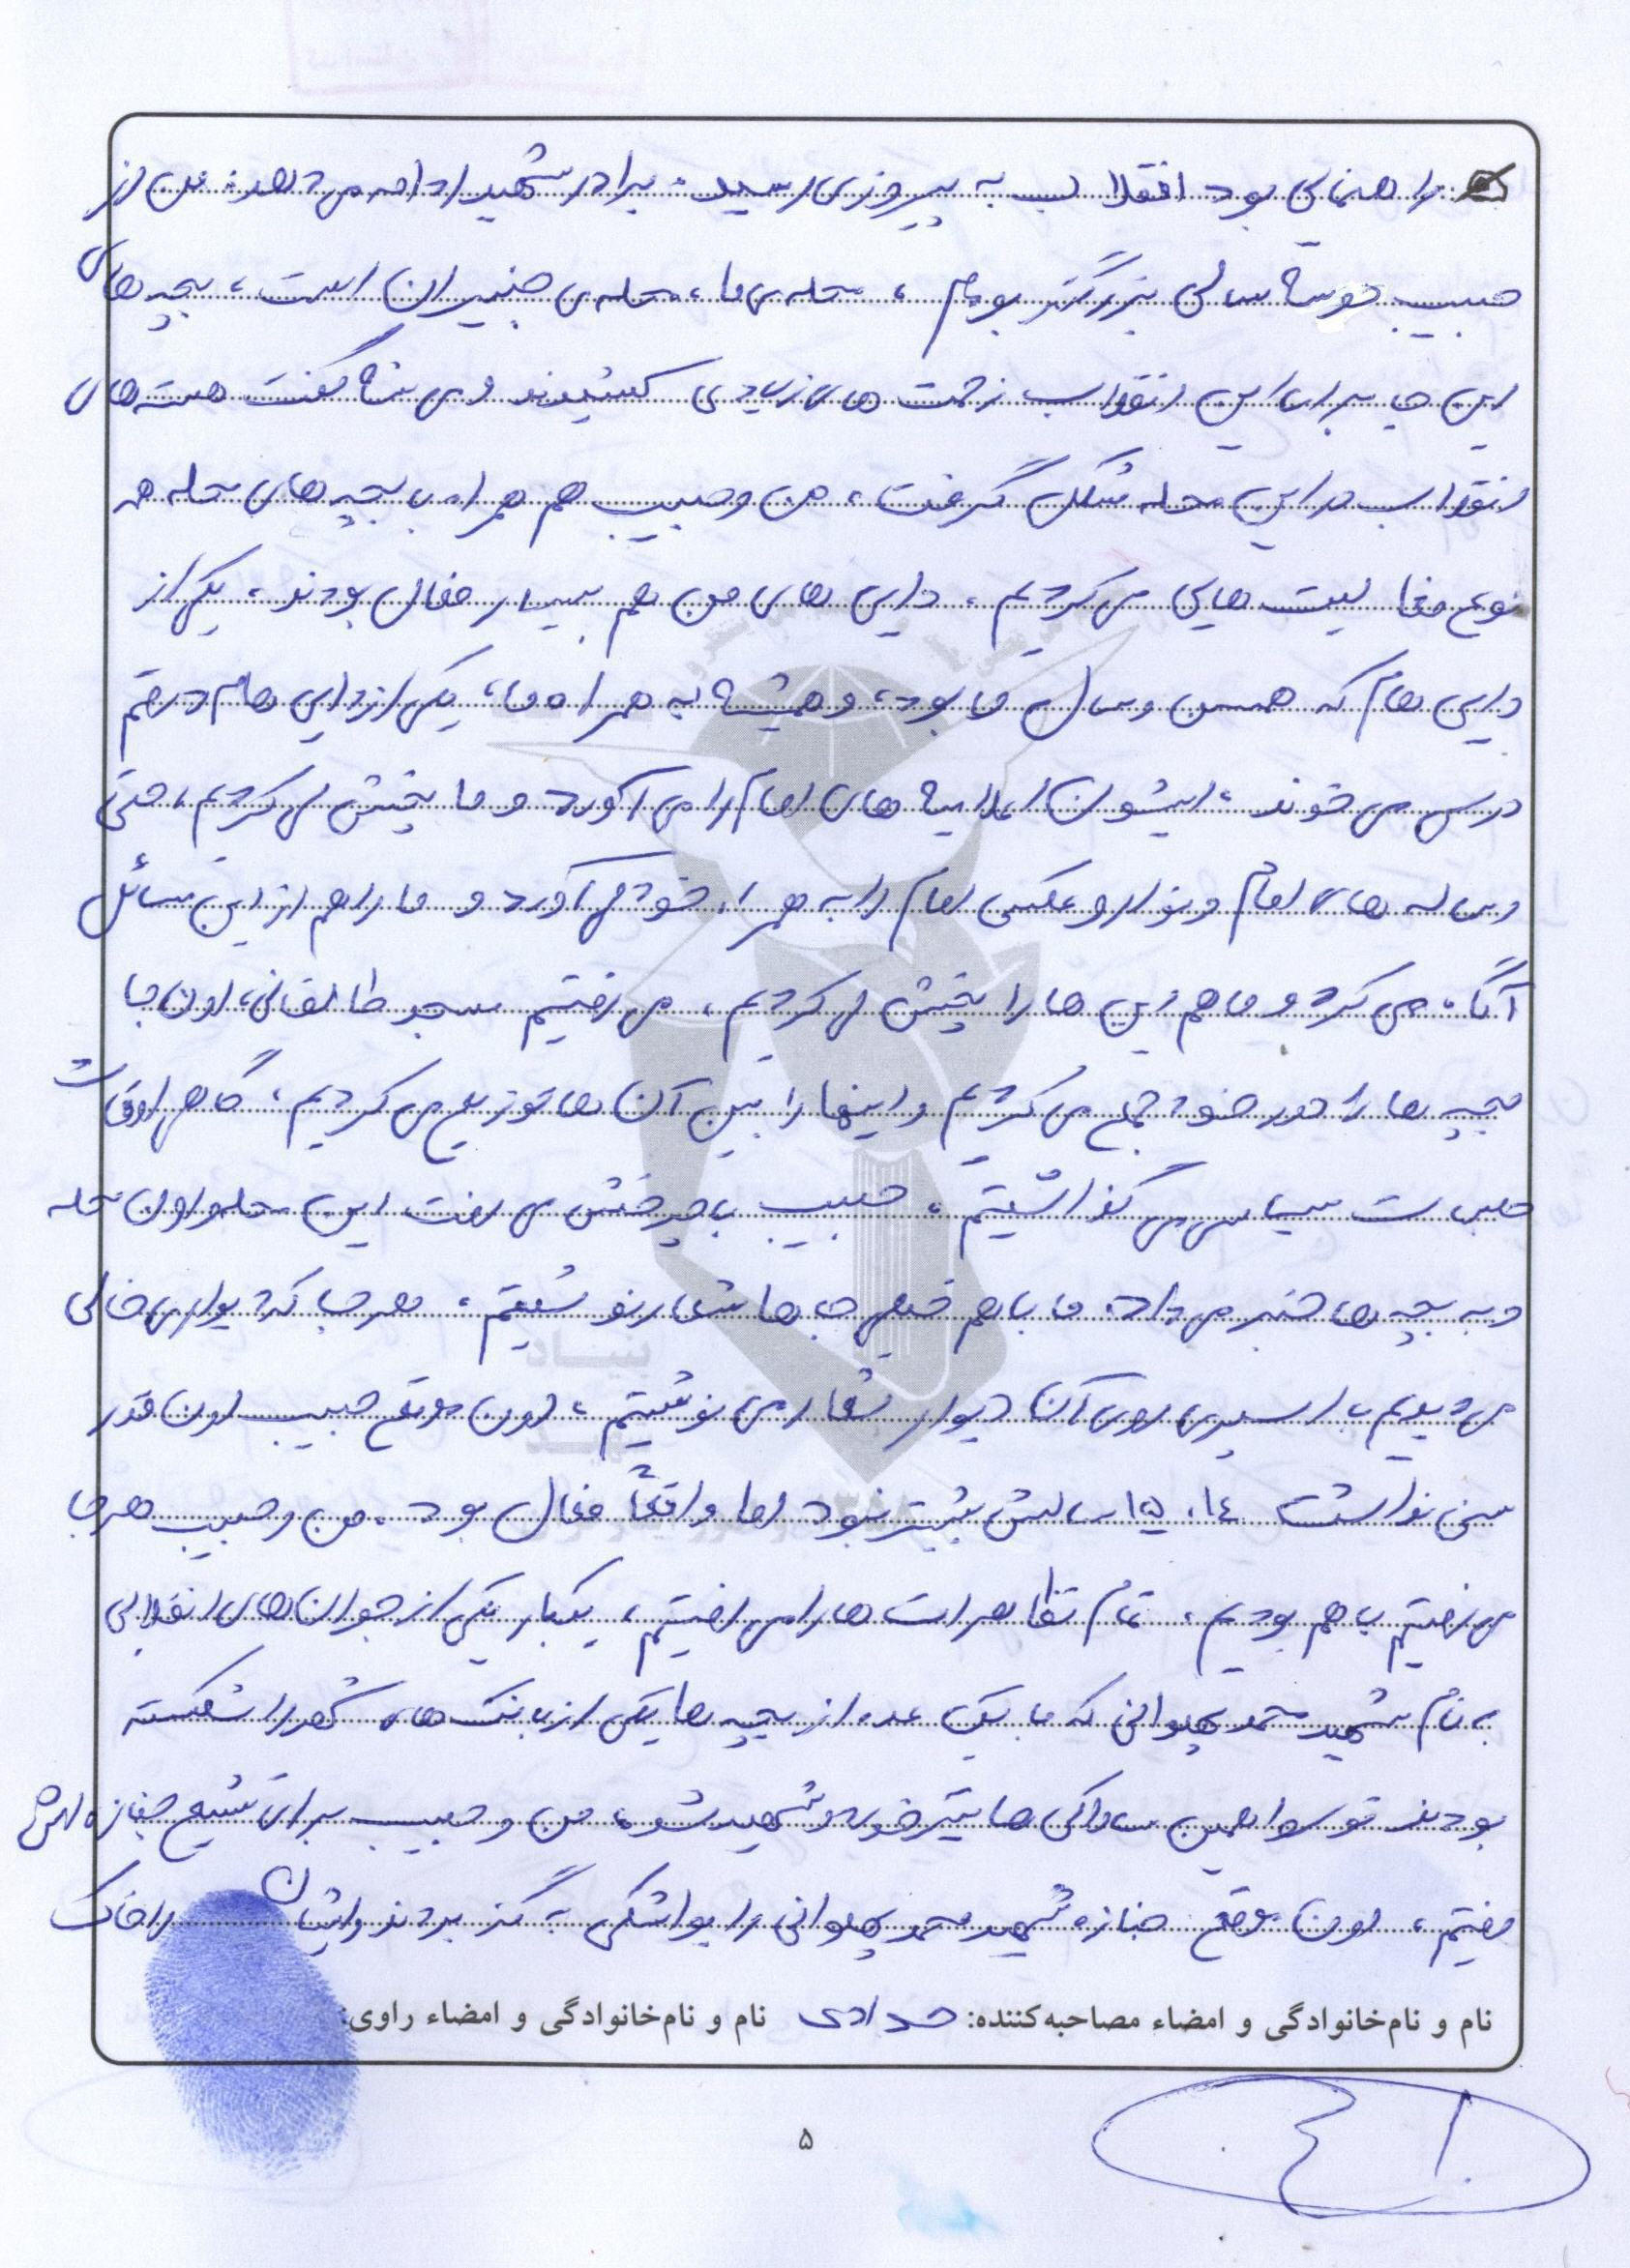 راهنمایی بود انقلاب به پیروزی رسید. برادر شهید ادامه می دهد: من از
حبیب دو سه سالی بزرگتر بودم، محله ی ما، محله ی خیبریان است، بچه های
این جا برای این انقلاب زحمت های زیادی کشیدند و می شه گفت هسته های
انقلاب در این محله شکل گرفت، من و حبیب هم همراه با بچه های محله هر
نوع فعالیت هایی می کردیم، دایی های من هم بسیار فعال بودند، یکی از
دایی هام که همسن و سال ما بود، و همیشه به همراه ما، یکی از دایی هام در قم
درس می خوند، ایشون اعلامیه های امام را می آورد و ما پخش می کردیم، حتی
رساله های امام و نوار و عکس امام را به همراه خود می آورد و ما را هم از این مسائل
آگاه می کرد و ما هم این ها را پخش می کردیم، می رفتیم مسجد طالقانی، اون جا
بچه ها را دور خود جمع می کردیم و اینها را بین آن ها توزیع می کردیم، گاهی اوقات
جلسات سیاسی می گذاشتیم، حبیب با چرخش می رفت این محله و اون محله
و به بچه ها خبر می داد، ما با هم خیلی جاها شعار نوشتیم، هر جا که دیواری خالی
می دیدیم با اسپری روی آن دیوار شعار می نوشتیم، اون موقع حبیب اون قدر
سنی نداشت ۱۴، ۱۵ سالش بیشتر نبود اما واقعاً فعال بود. من و حبیب هر جا
می رفتیم با هم بودیم، تمام تظاهرات ها را می رفتیم، یکبار یکی از جوان های انقلابی
به نام شهید محمد پهلوانی که با یک عده از بچه ها یکی از بانک های شهر را شکسته
بودند توسط همین ساواکی ها تیر خورد و شهید شد، من و حبیب برای تشییع جنازه اش
رفتیم، اون موقع جنازه شهید محمد پهلوانی را یواشکی به گز بردند و ایشان را خاک
نام و نام‌خانوادگی و امضاء مصاحبه‌کننده: حدادی نام و نام‌خانوادگی و امضاء راوی:
۵